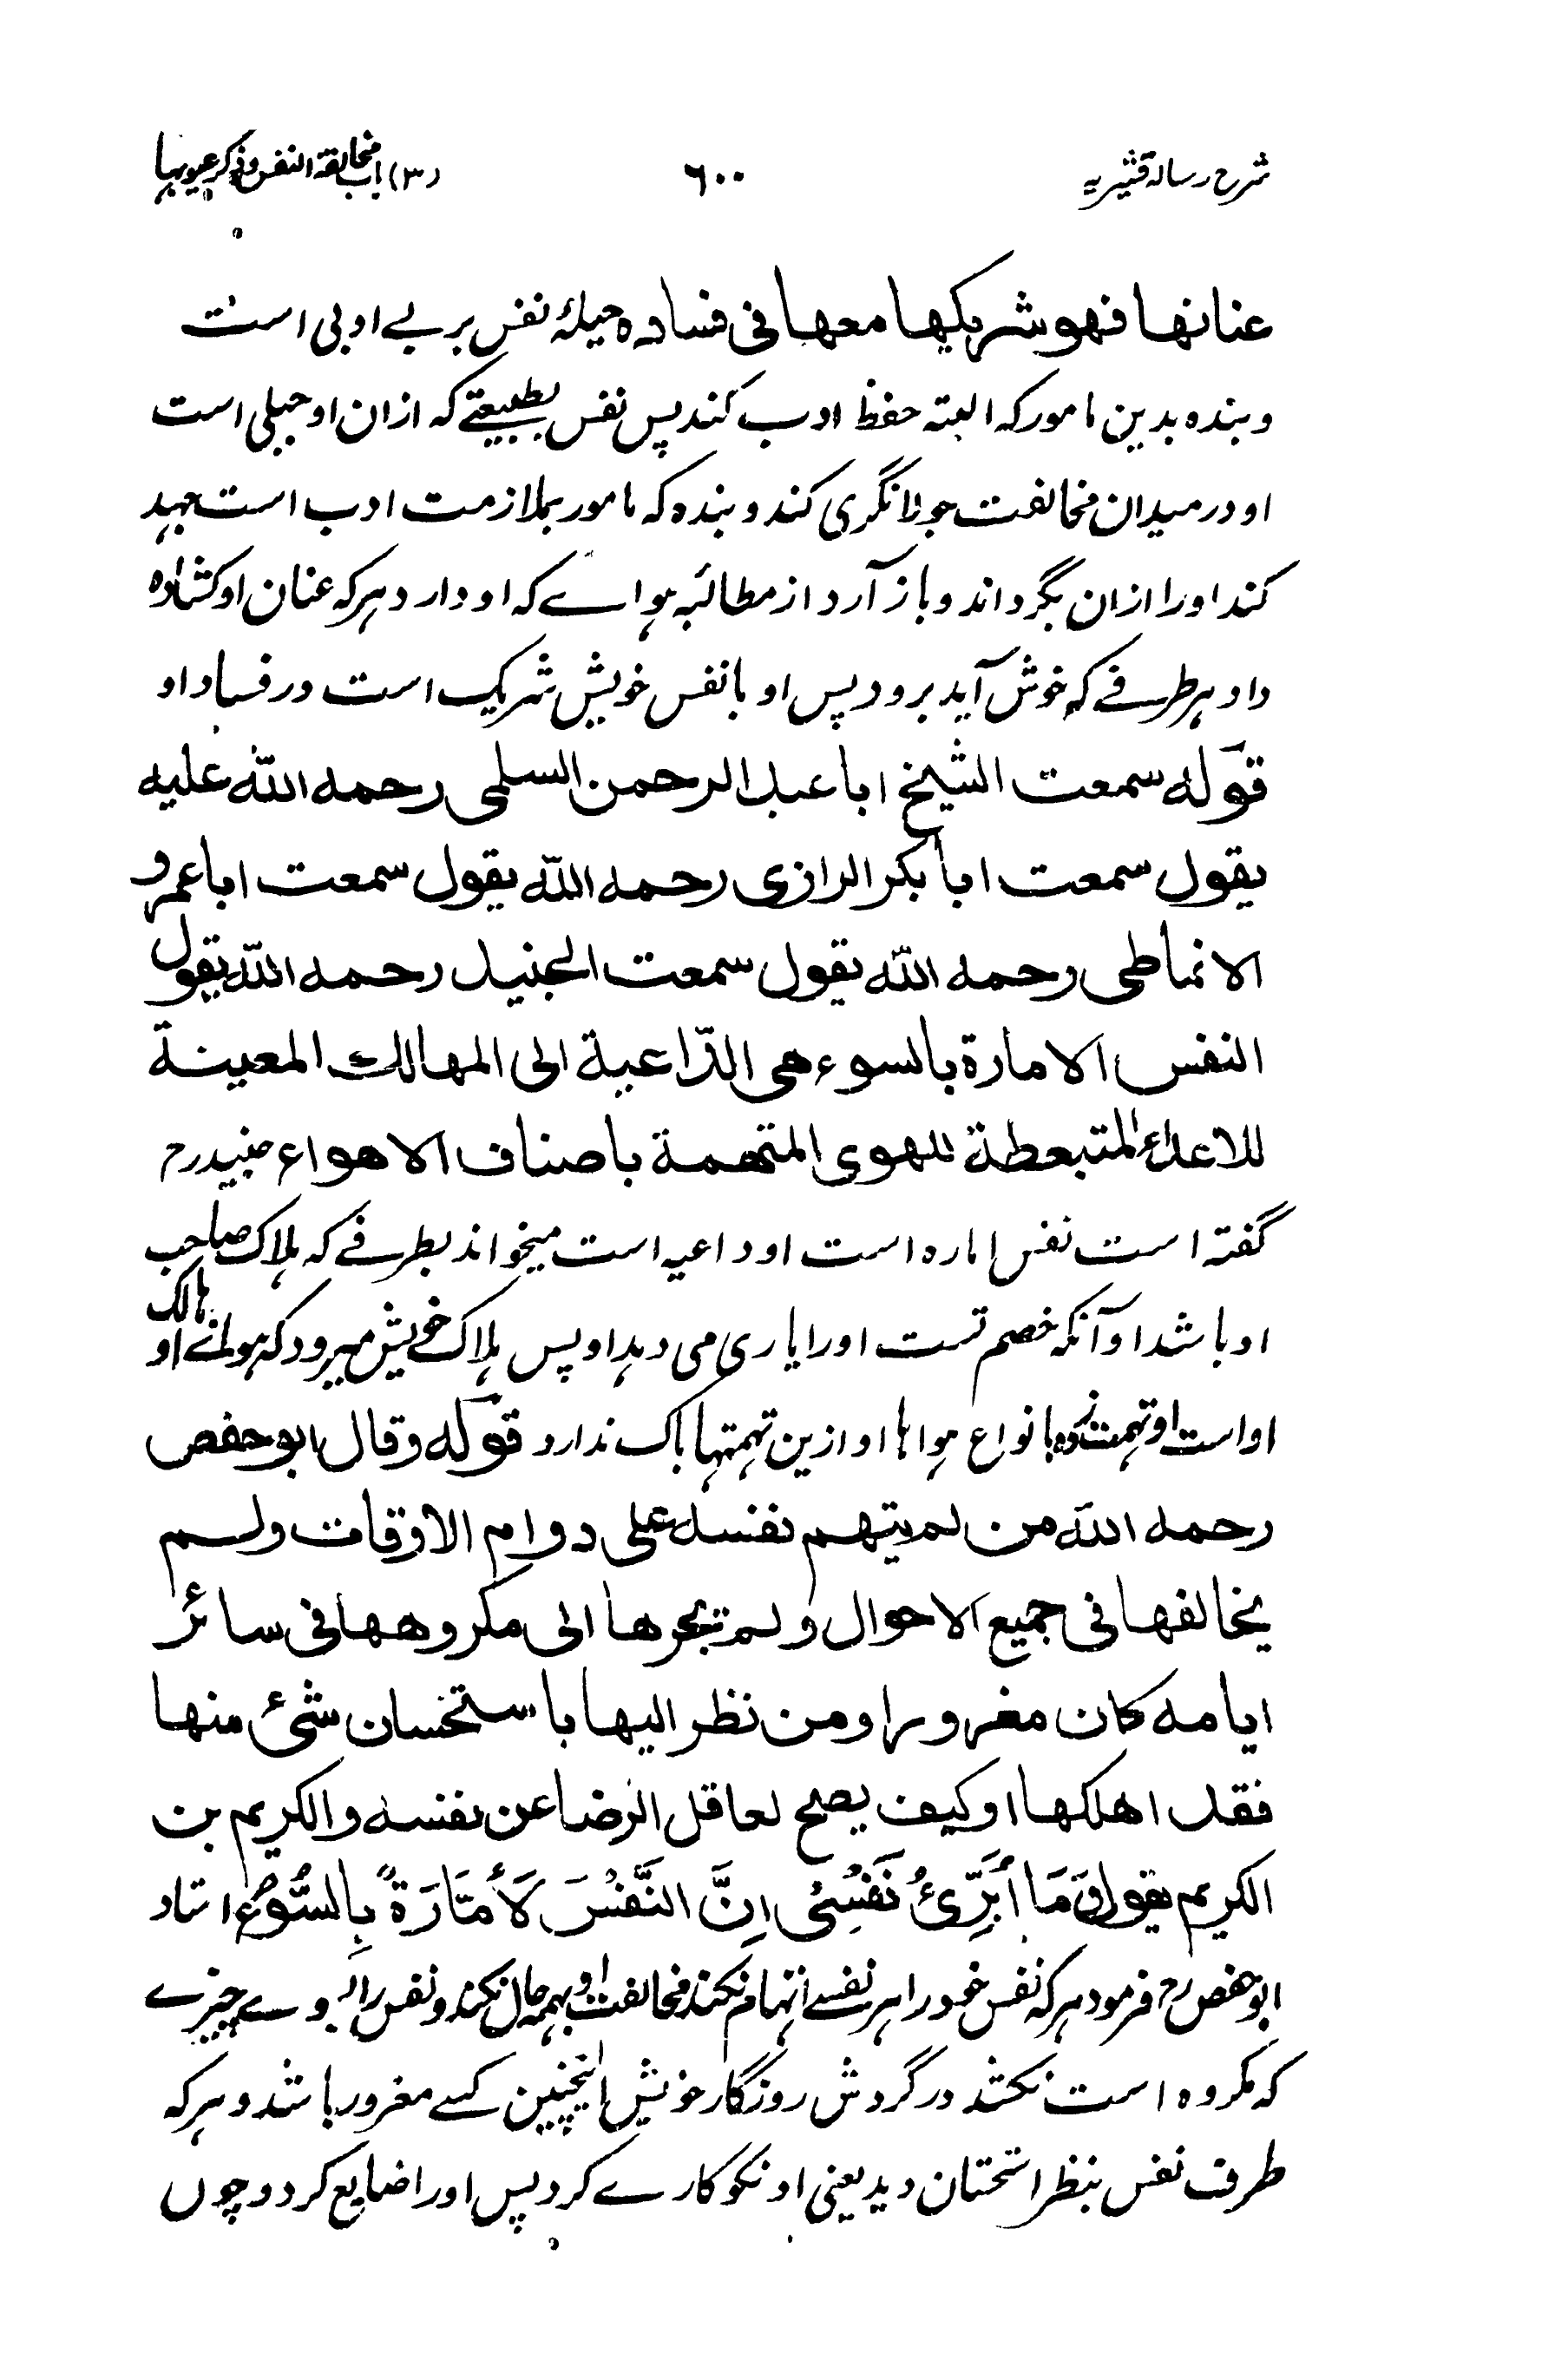 شرح رسالہ قشیریہ ٦٠٠ (٣) باب مخالفة النفس وذکر عیوبہا
عنانها فهو شریکها معها فی فساده حیلۂ نفس بر بے ادبی است
و بنده بدین مامور کہ البتہ حفظ ادب کند پس نفس بطبیعتے کہ ازان او جبلی است
او در میدان مخالفت جولانگری کند و بنده کہ مامور بملازمت ادب است جہد
کند اورا ازان بگرداند و باز آرد از مطالبہ ہواے کہ او دارد ہرکہ عنان او کشاده
داد ہر طرفے کہ خوش آید برود پس او با نفس خویش شریک است در فساد او
قوله سمعت الشیخ ابا عبد الرحمن السلمی رحمه الله علیه
یقول سمعت ابا بکر الرازی رحمه الله یقول سمعت ابا عمرو
الانماطی رحمه الله یقول سمعت الجنید رحمه الله یقول
النفس الامارة بالسوء هی الدّاعیة الی المهالك المعینة
للاعداء المتبعطة للهوی المتهمة باصناف الاهواء جنید رح
گفتہ است نفس اماره است او داعیہ است میخواند بطرفے کہ ہلاک صاحب
او باشد او آنکہ خصم تست اورا یاری می دہد او پس ہلاک خویش میرود کہ ہوائے او ہالک
او است او تہمت زده بانواع ہواہا او ازین تہمتہا باک ندارد قوله وقال ابو حفص
رحمه الله من لم یتهم نفسه علی دوام الاوقات ولم
یخالفها فی جمیع الاحوال ولم یجرها الی مکروهها فی سائر
ایامه کان مغرورا ومن نظر الیها باستحسان شئ منها
فقد اهلکها او کیف یصح لعاقل الرضا عن نفسه والکریم بن
الکریم یقول وَمَا أُبَرِّئُ نَفْسِیْ اِنَّ النَّفْسَ لَأَمَّارَةٌ بِالسُّوْءِ استاد
ابو حفص رح فرمود ہرکہ نفس خود را ہر نفسے اتہام نکند مخالفت او بہمہ حال نکند و نفس را بسوے چیزے
کہ مکروه است نکشد در گردش روزگار خویش اینچنین کسے مغرور باشد و ہرکہ
طرف نفس بنظر استحسان دید یعنی او نکو کارے کرد پس اورا ضایع کرد و چوں